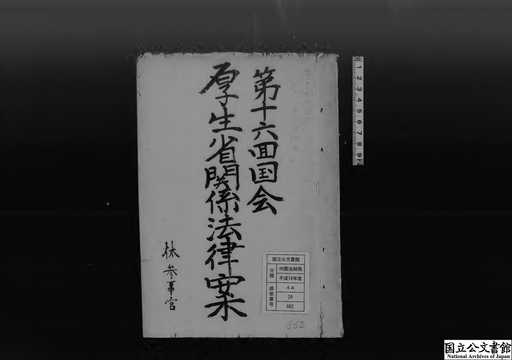 第十六回国会
厚生省関係法律案
林参事官
国立公文書館
分類
内閣法制局
平成14年度
4A
29
682
162
1 2 3 4 5 6 7 8 9
国立公文書館
National Archives of Japan